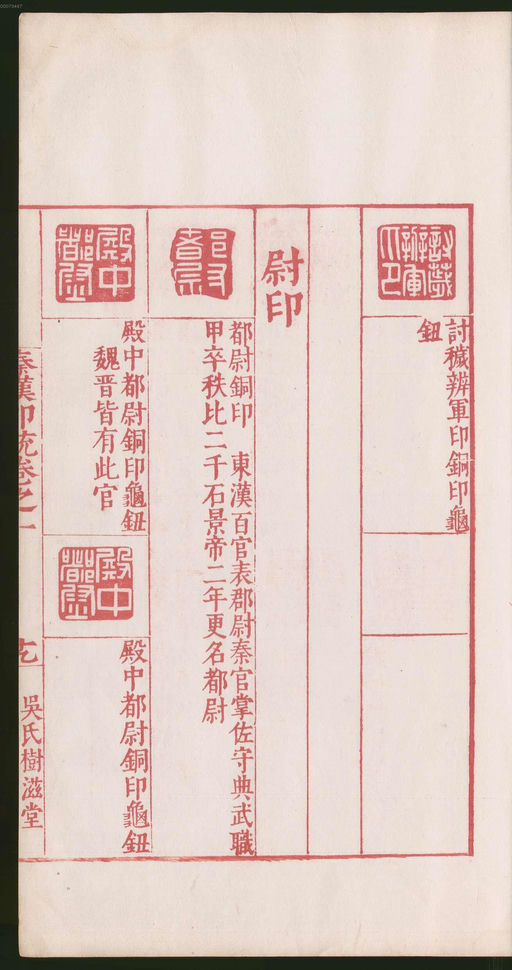 討薉辦軍印
討穢辨軍印銅印龜
鈕
尉印
都尉
都尉銅印　東漢百官表郡尉秦官掌佐守典武職
甲卒秩比二千石景帝二年更名都尉
殿中都尉
殿中都尉銅印龜鈕
魏晉皆有此官
殿中都尉
殿中都尉銅印龜鈕
秦漢印統卷之一
吳氏樹滋堂
00073447